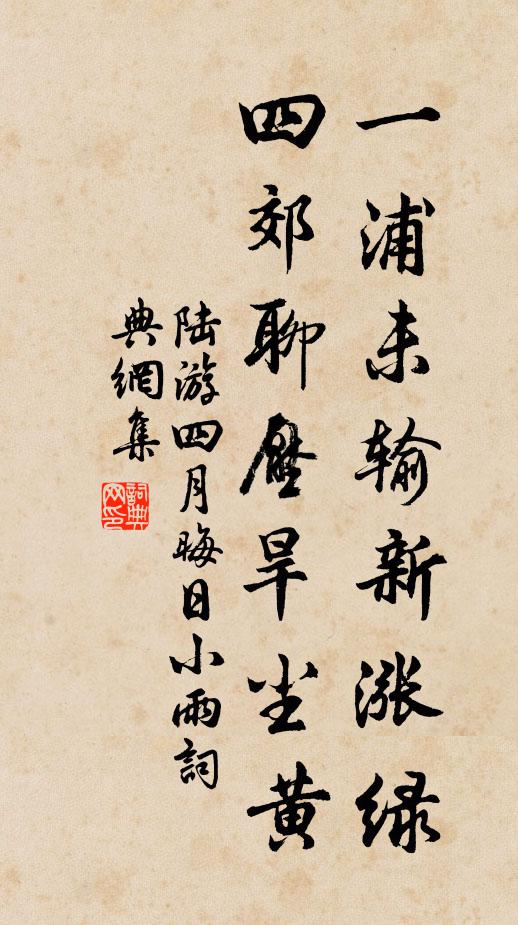 一浦未输新涨绿
四郊聊压旱尘黄
陆游四月晦日小雨詞
典網集
詞典
网印